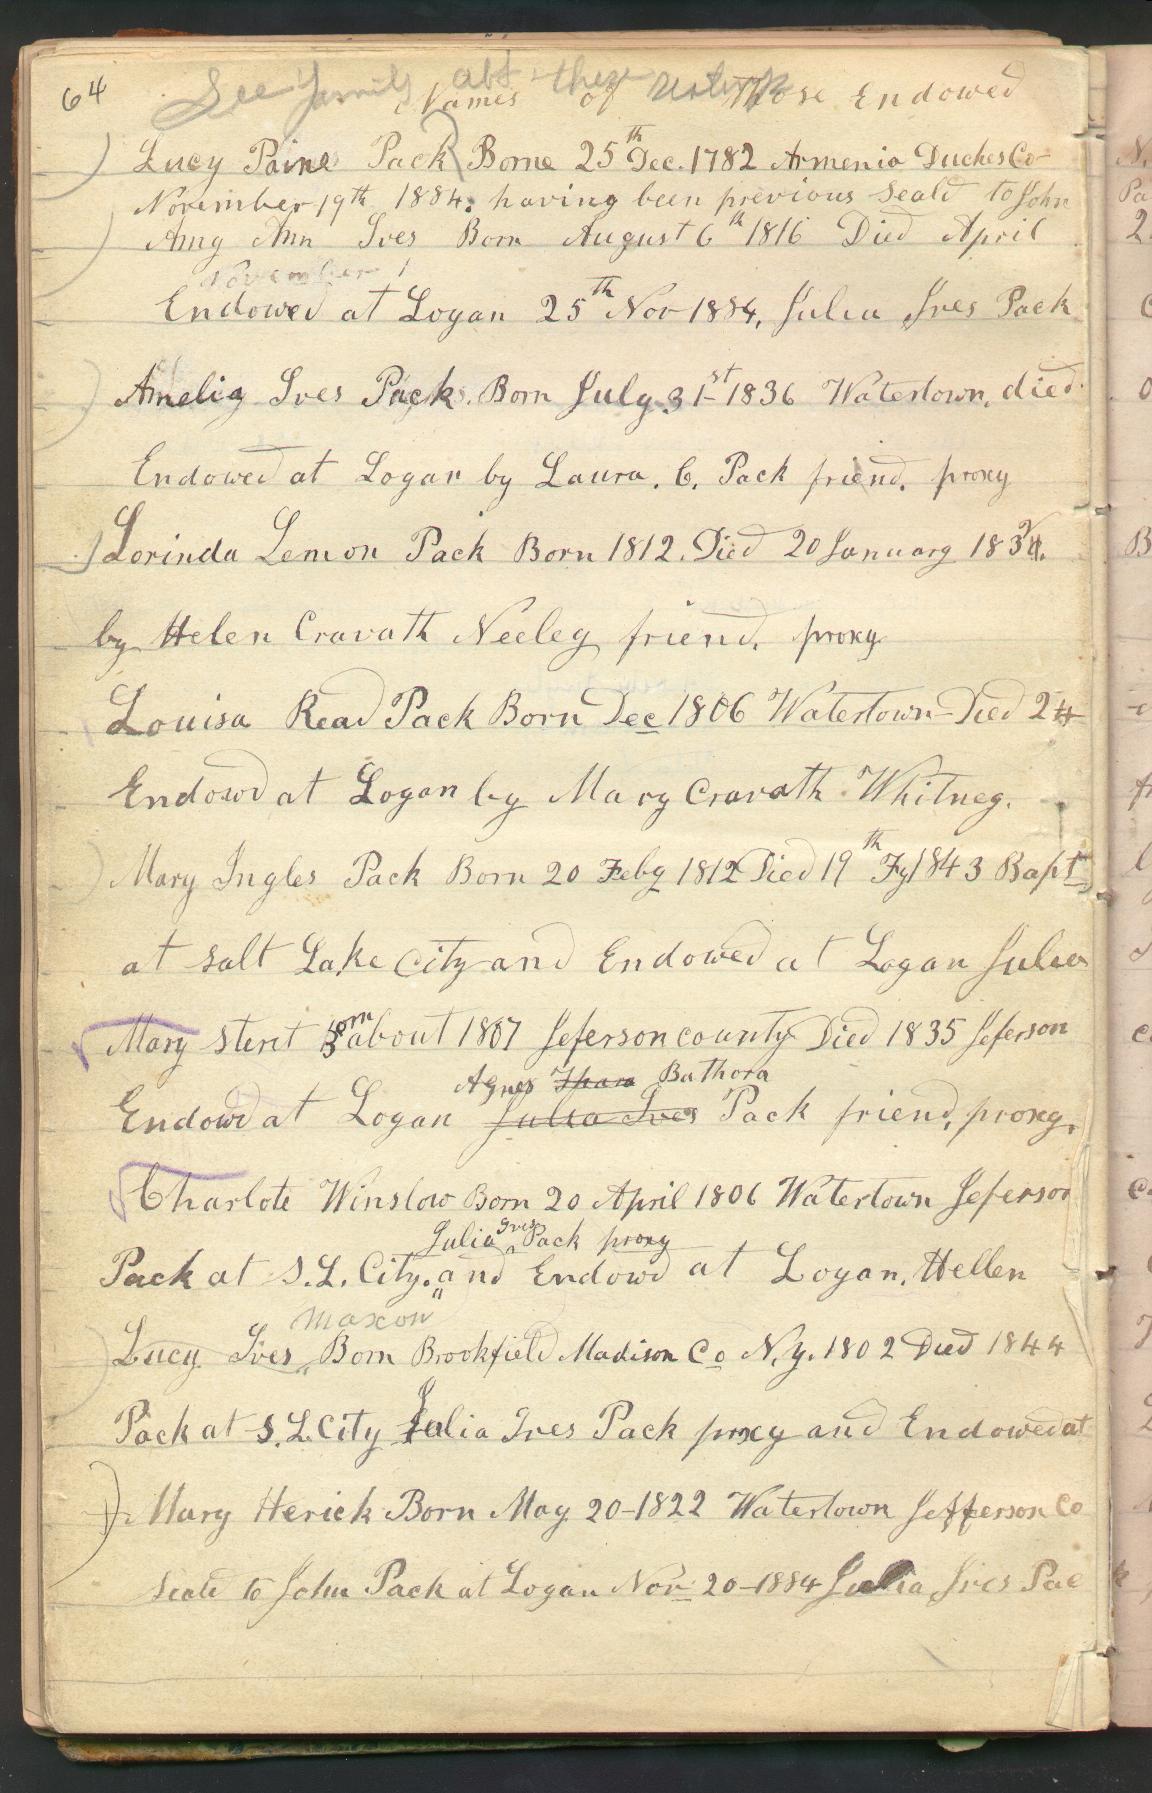 64
See Family abt these
Names of Those Endowed
Lucy Paine Pack Borne 25th Dec. 1782 Armenia Duches Co
November 19th 1884. having been previous Seald to John
Amy Ann Ives Born August 6th 1816 Died April
November 1
Endowed at Logan 25th Nov 1884, Julia Ives Pack
Amelia Ives Pack. Born July 31st 1836 Watertown, died
Endowed at Logan by Laura. C. Pack friend, proxy
Lorinda Lemon Pack Born 1812. Died 20 January
by Helen Cravath Neeley friend, proxy
Louisa Read Pack Born Dec 1806 Watertown Died 24
Endowd at Logan by Mary Cravath Whitney.
Mary Ingles Pack Born 20 Feby 1812 Died 19th Fy 1843 Bapt
at Salt Lake City and Endowed at Logan Julia
Mary Stent Born about 1807 Jeferson county Died 1835 Jeferson
Agnes Bathora
Endowd at Logan Julia Ives Pack friend, proxy.
Charlote Winslow Born 20 April 1806 Watertown Jeferson
Julia Ives Pack proxy
Pack at S.L. City. and Endowd at Logan. Hellen
Maxon
Lucy Ives Born Brookfield Madison Co N.y. 1802 Died 1844
Pack at S.L. City Julia Ives Pack proxy and Endowed at
Mary Herick Born May 20-1822 Watertown Jefferson Co
Seald to John Pack at Logan Nov 20-1884 Julia Ives Pac